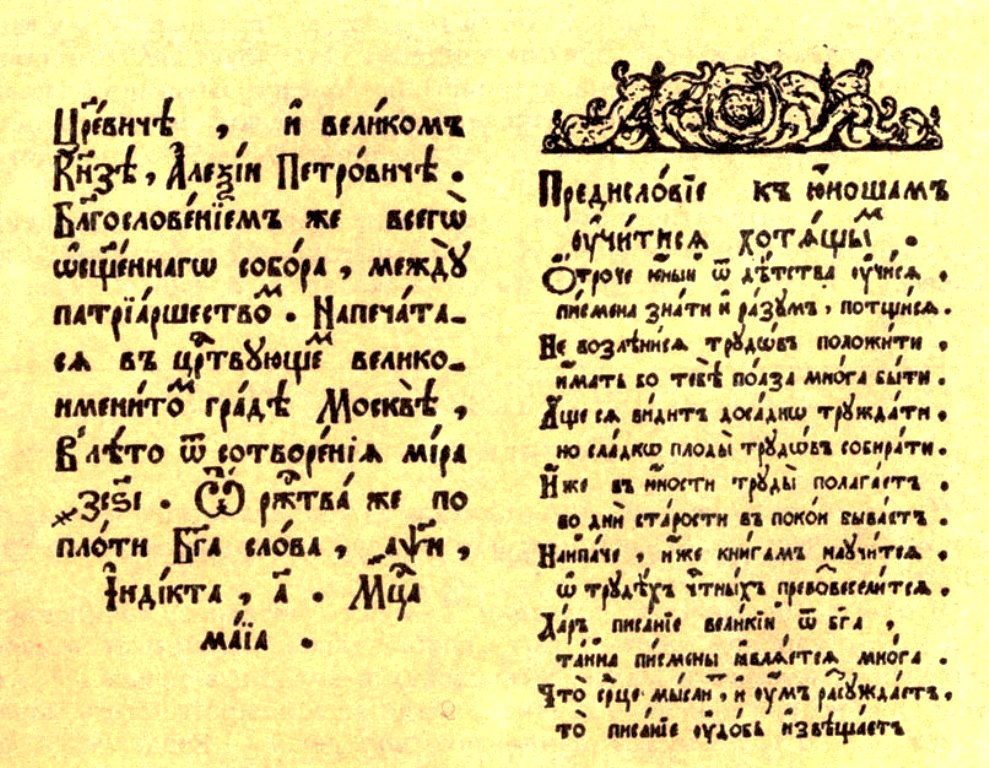 Цр҃е́вичѣ , и҆ вели́комъ
Кн҃зѣ, А҆леѯі́и Петро́вичѣ .
Бл҃гослове́нїемъ же всегѡ̀
ѡ҆сщ҃е́ннагѡ собо́ра , междꙋ̀
патрїа́ршествоⷨ . Напеча́та-
сѧ въ црⷭ҇твꙋющеⷨ велико-
имени́тоⷨ гра́дѣ Москвѣ̀ ,
В лѣ́то ѿ сотворе́нїѧ мі́ра
҂зсѕе . Ѿ ржⷭ҇тва́ же по
пло́ти Бг҃а сло́ва , ҂аѱч҃и ,
І҆нді́кта , а҃ . Мцⷭ҇а
ма́їа .
Предисло́вїе къ ю҆́ношамъ
ᲂу҆чи́тисѧ хотѧ́щыⷨ .
Ѻ҆́троче ю҆́ный ѿ дѣ́тства ᲂу҆чи́сѧ .
пи́смена зна́ти и҆ ра́зꙋмъ , потщи́сѧ .
Не возлѣни́сѧ трꙋдѡ́въ положи́ти ,
и҆́мать бо тебѣ̀ по́лза мно́га бы́ти .
А҆́ще сѧ ви́дитъ доса́днѡ трꙋжда́ти .
но сла́дкѡ плоды̀ трꙋдѡ́въ собира́ти .
И҆́же въ ю҆́ности трꙋды̀ полага́етъ .
во дни̑ ста́рости въ поко́и быва́етъ .
Наипа́че , и҆́же кни́гамъ наꙋчи́тсѧ .
ѡ҆ трꙋдѣ́хъ чⷭ҇тны́хъ превовесели́тсѧ .
Да́ръ писа́нїе вели́кїй ѿ бг҃а ,
та́йна пи́смены ꙗ҆влѧ́етсѧ мно́га .
Что̀ срⷣце мы́слиⷮ , и҆ ᲂу҆мъ расꙋжда́етъ .
то̀ писа́нїе ᲂу҆до́бь и҆звѣща́етъ